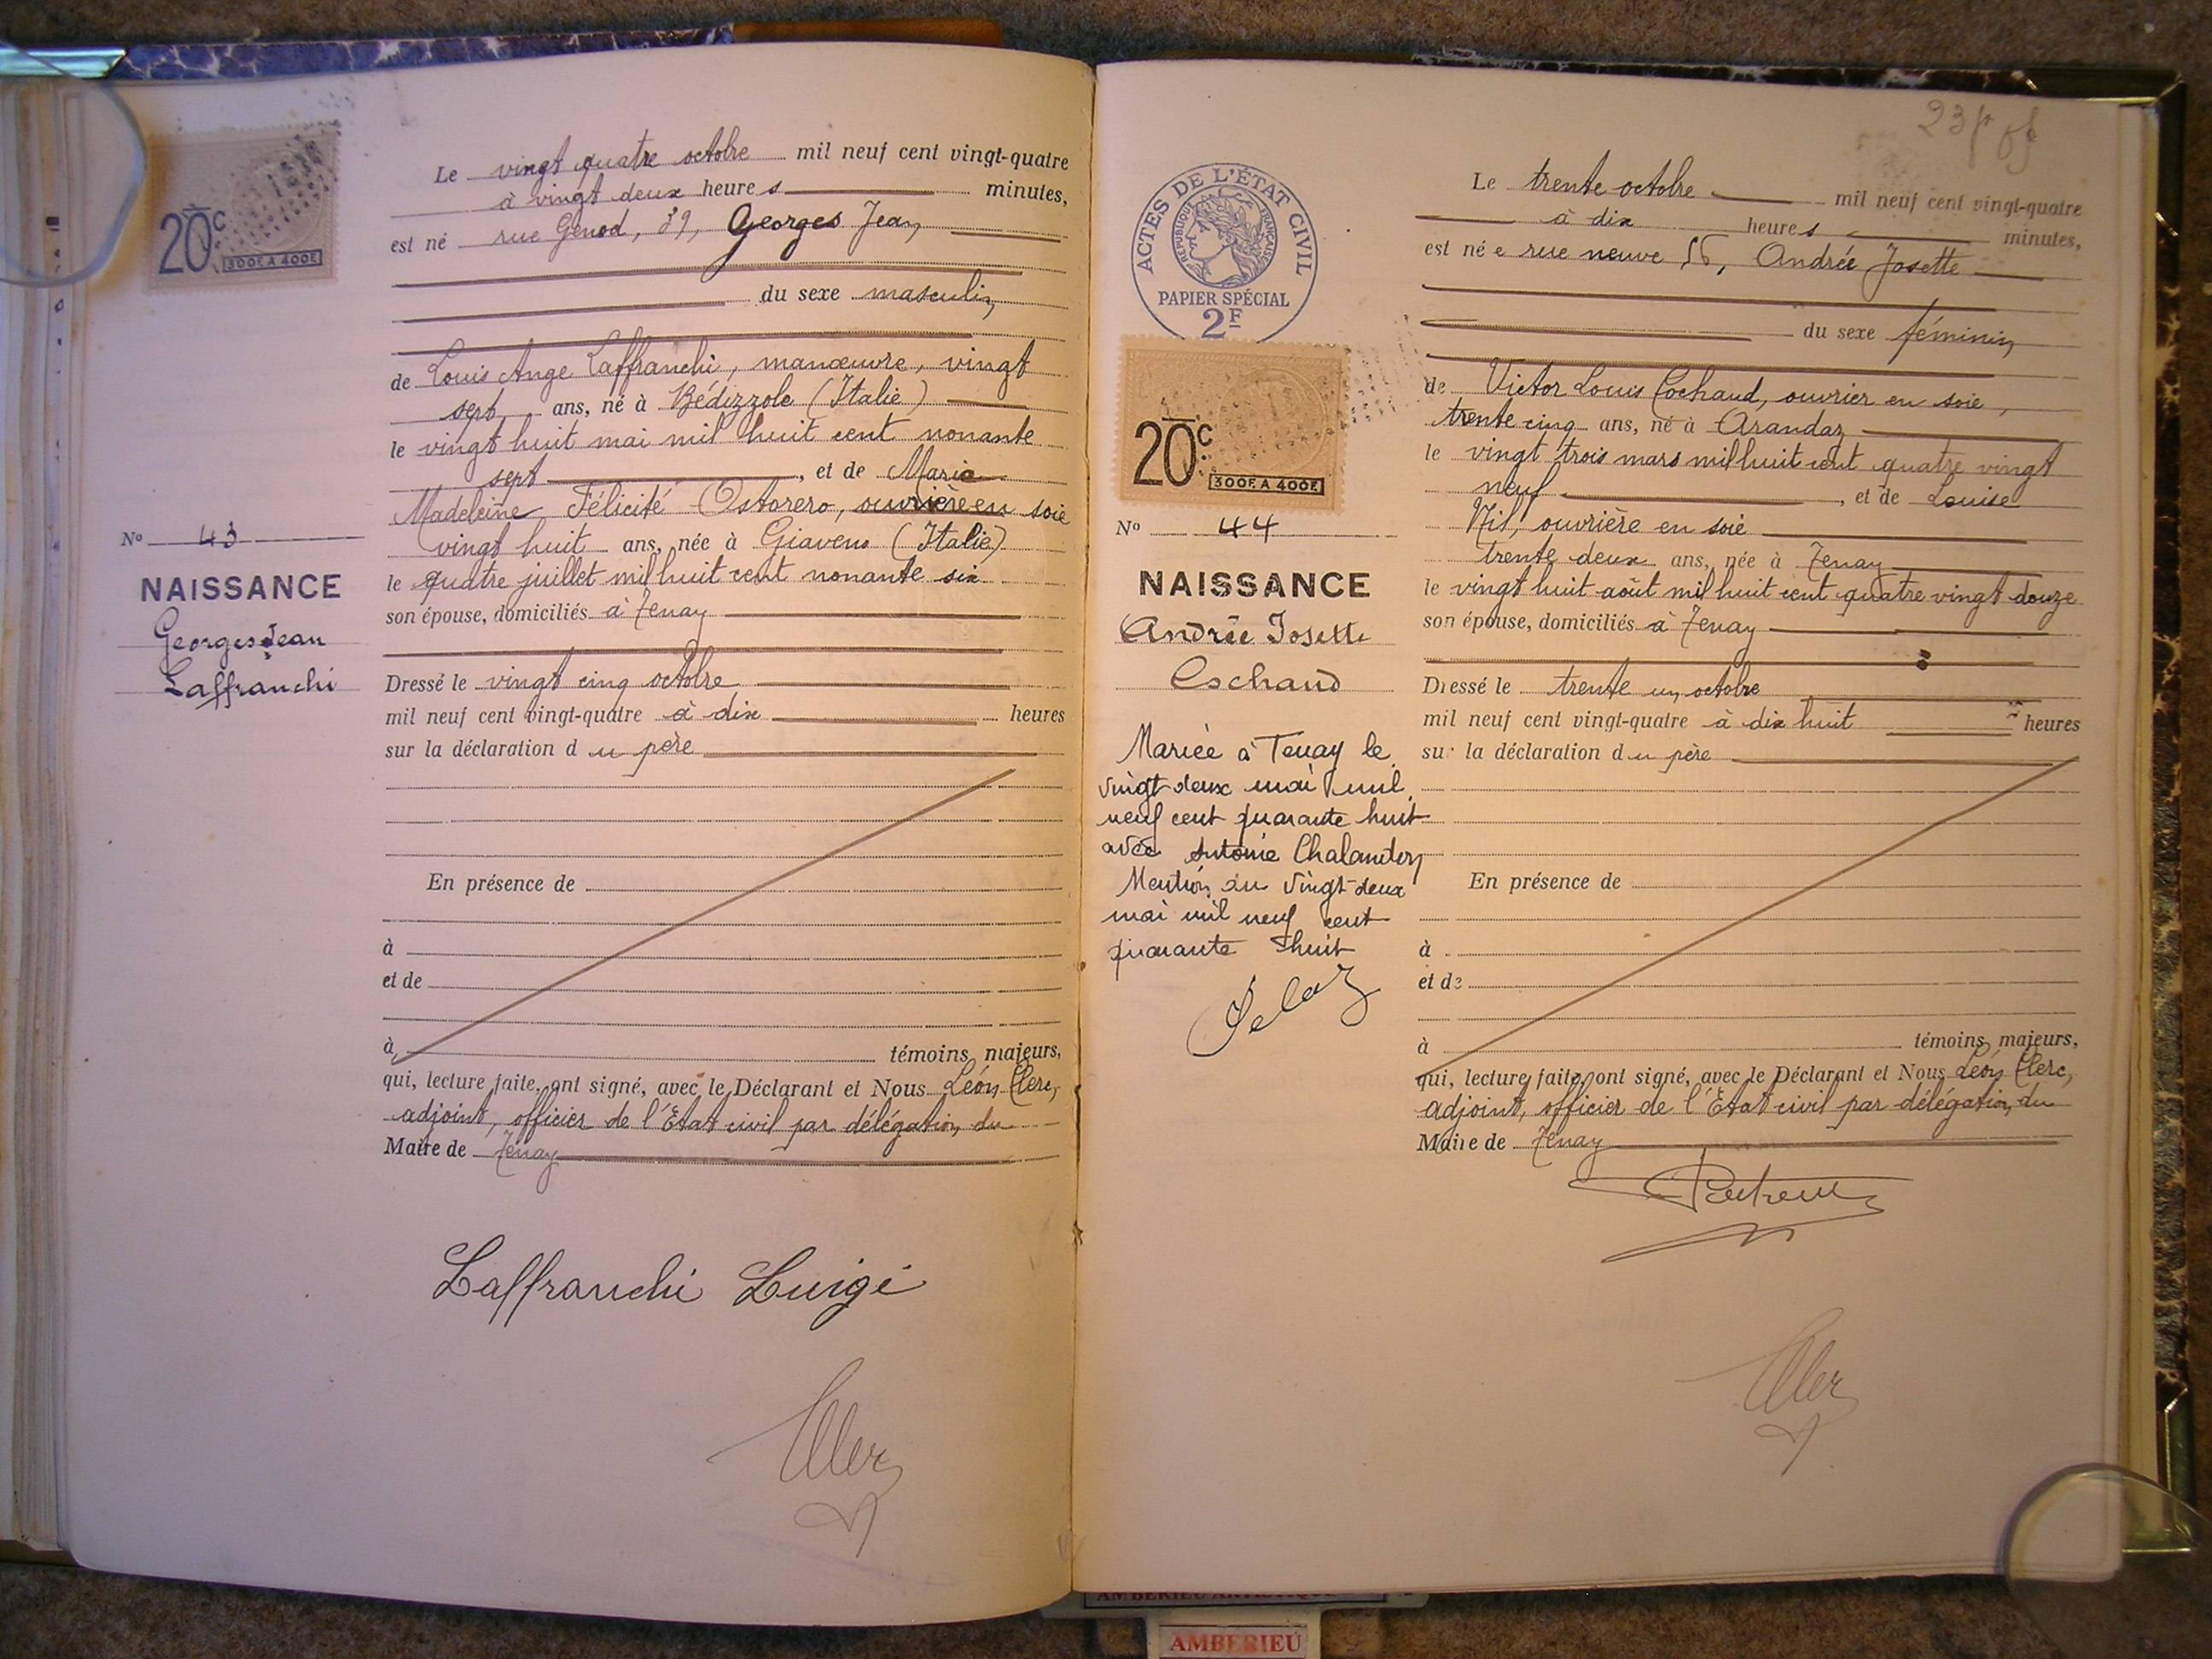 20c
300F. A 400F.
Le vingt quatre octobre mil neuf cent vingt-quatre
à vingt deux heures minutes,
est né rue Genod, 39, Georges Jean
du sexe masculin
de Louis Ange Laffranchi, manœuvre, vingt
sept ans, né à Bédizzole (Italie)
le vingt huit mai mil huit cent nonante
sept, et de Marie
Madeleine Félicité Ostorero, ouvrière en soie
vingt huit ans, née à Giaveno (Italie)
le quatre juillet mil huit cent nonante six
son épouse, domiciliés à Tenay
Dressé le vingt cinq octobre
mil neuf cent vingt-quatre à dix heures
sur la déclaration du père
En présence de
à
et de
à, témoins majeurs,
qui, lecture faite, ont signé, avec le Déclarant et Nous Léon Clerc,
adjoint, officier de l'Etat civil par délégation du
Maire de Tenay
Laffranchi Luigi
No 43
NAISSANCE
Georges Jean
Laffranchi
ACTES DE L'ÉTAT CIVIL
RÉPUBLIQUE FRANÇAISE
PAPIER SPÉCIAL
2F
20c
300F. A 400F.
No 44
NAISSANCE
Andrée Josette
Cochaud
Mariée à Tenay le
vingt-deux mai mil
neuf cent quarante huit
avec Antoine Chalandon
Mention du vingt-deux
mai mil neuf cent
quarante huit
Le trente octobre mil neuf cent vingt-quatre
à dix heures minutes,
est née rue neuve 56, Andrée Josette
du sexe féminin
de Victor Louis Cochaud, ouvrier en soie,
trente cinq ans, né à Arandaz
le vingt trois mars mil huit cent quatre vingt
neuf, et de Louise
Nil, ouvrière en soie
trente deux ans, née à Tenay
le vingt huit août mil huit cent quatre vingt douze
son épouse, domiciliés à Tenay
Dressé le trente un octobre
mil neuf cent vingt-quatre à dix huit heures
sur la déclaration du père
En présence de
à
et de
à témoins majeurs,
qui, lecture faite, ont signé, avec le Déclarant et Nous Léon Clerc,
adjoint, officier de l'Etat civil par délégation du
Maire de Tenay
AMBERIEU